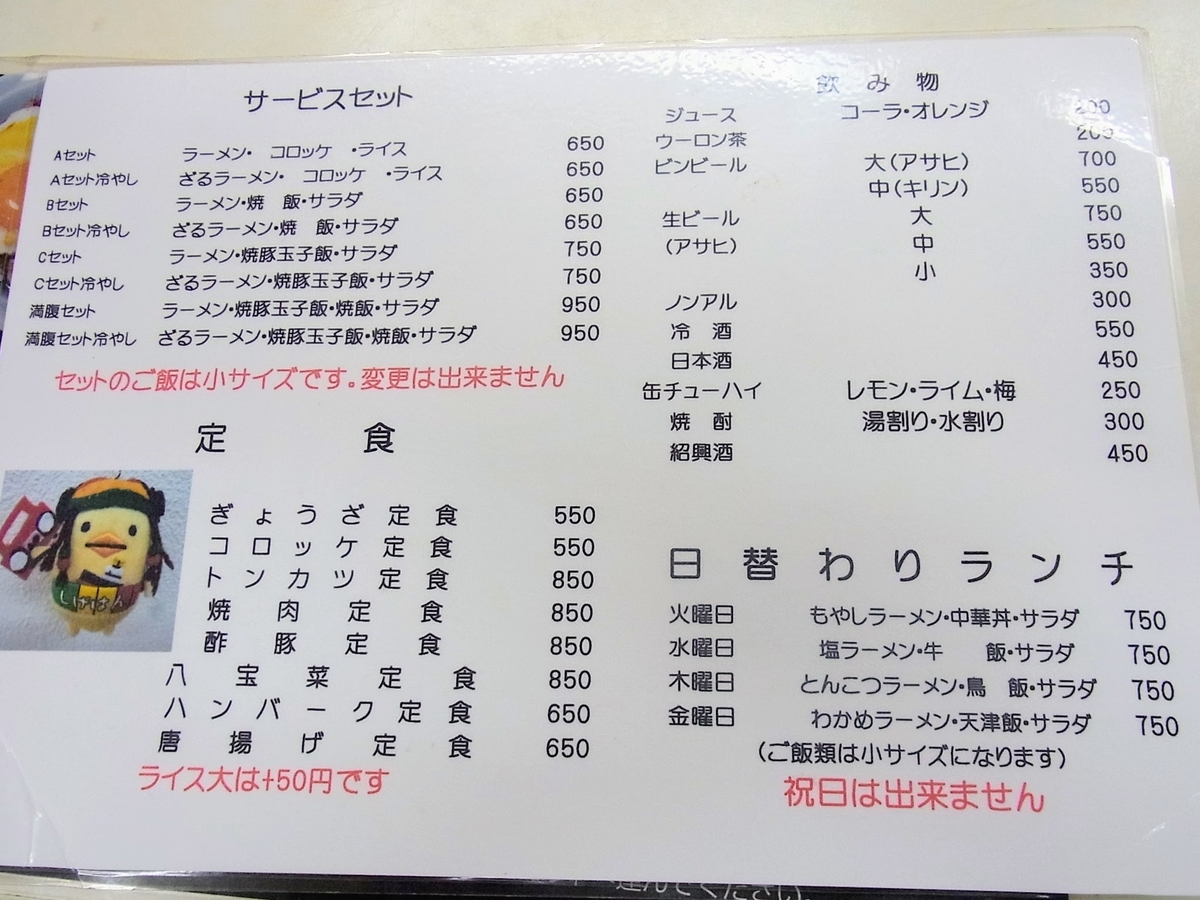 サービスセット
Aセット ラーメン・ コロッケ ・ライス 650
Aセット冷やし ざるラーメン・ コロッケ ・ライス 650
Bセット ラーメン・焼 飯・サラダ 650
Bセット冷やし ざるラーメン・焼 飯・サラダ 650
Cセット ラーメン・焼豚玉子飯・サラダ 750
Cセット冷やし ざるラーメン・焼豚玉子飯・サラダ 750
満腹セット ラーメン・焼豚玉子飯・焼飯・サラダ 950
満腹セット冷やし ざるラーメン・焼豚玉子飯・焼飯・サラダ 950
セットのご飯は小サイズです。変更は出来ません
定 食
ぎょうざ定食 550
コロッケ定食 550
トンカツ定食 850
焼肉定食 850
酢豚定食 850
八宝菜定食 850
ハンバーク定食 650
唐揚げ定食 650
ライス大は+50円です
しげぱん
飲み物
ジュース コーラ・オレンジ 200
ウーロン茶 200
ビンビール 大(アサヒ) 700
中(キリン) 550
生ビール 大 750
(アサヒ) 中 550
小 350
ノンアル 300
冷 酒 550
日本酒 450
缶チューハイ レモン・ライム・梅 250
焼 酎 湯割り・水割り 300
紹興酒 450
日替わりランチ
火曜日 もやしラーメン・中華丼・サラダ 750
水曜日 塩ラーメン・牛 飯・サラダ 750
木曜日 とんこつラーメン・鳥 飯・サラダ 750
金曜日 わかめラーメン・天津飯・サラダ 750
(ご飯類は小サイズになります)
祝日は出来ません